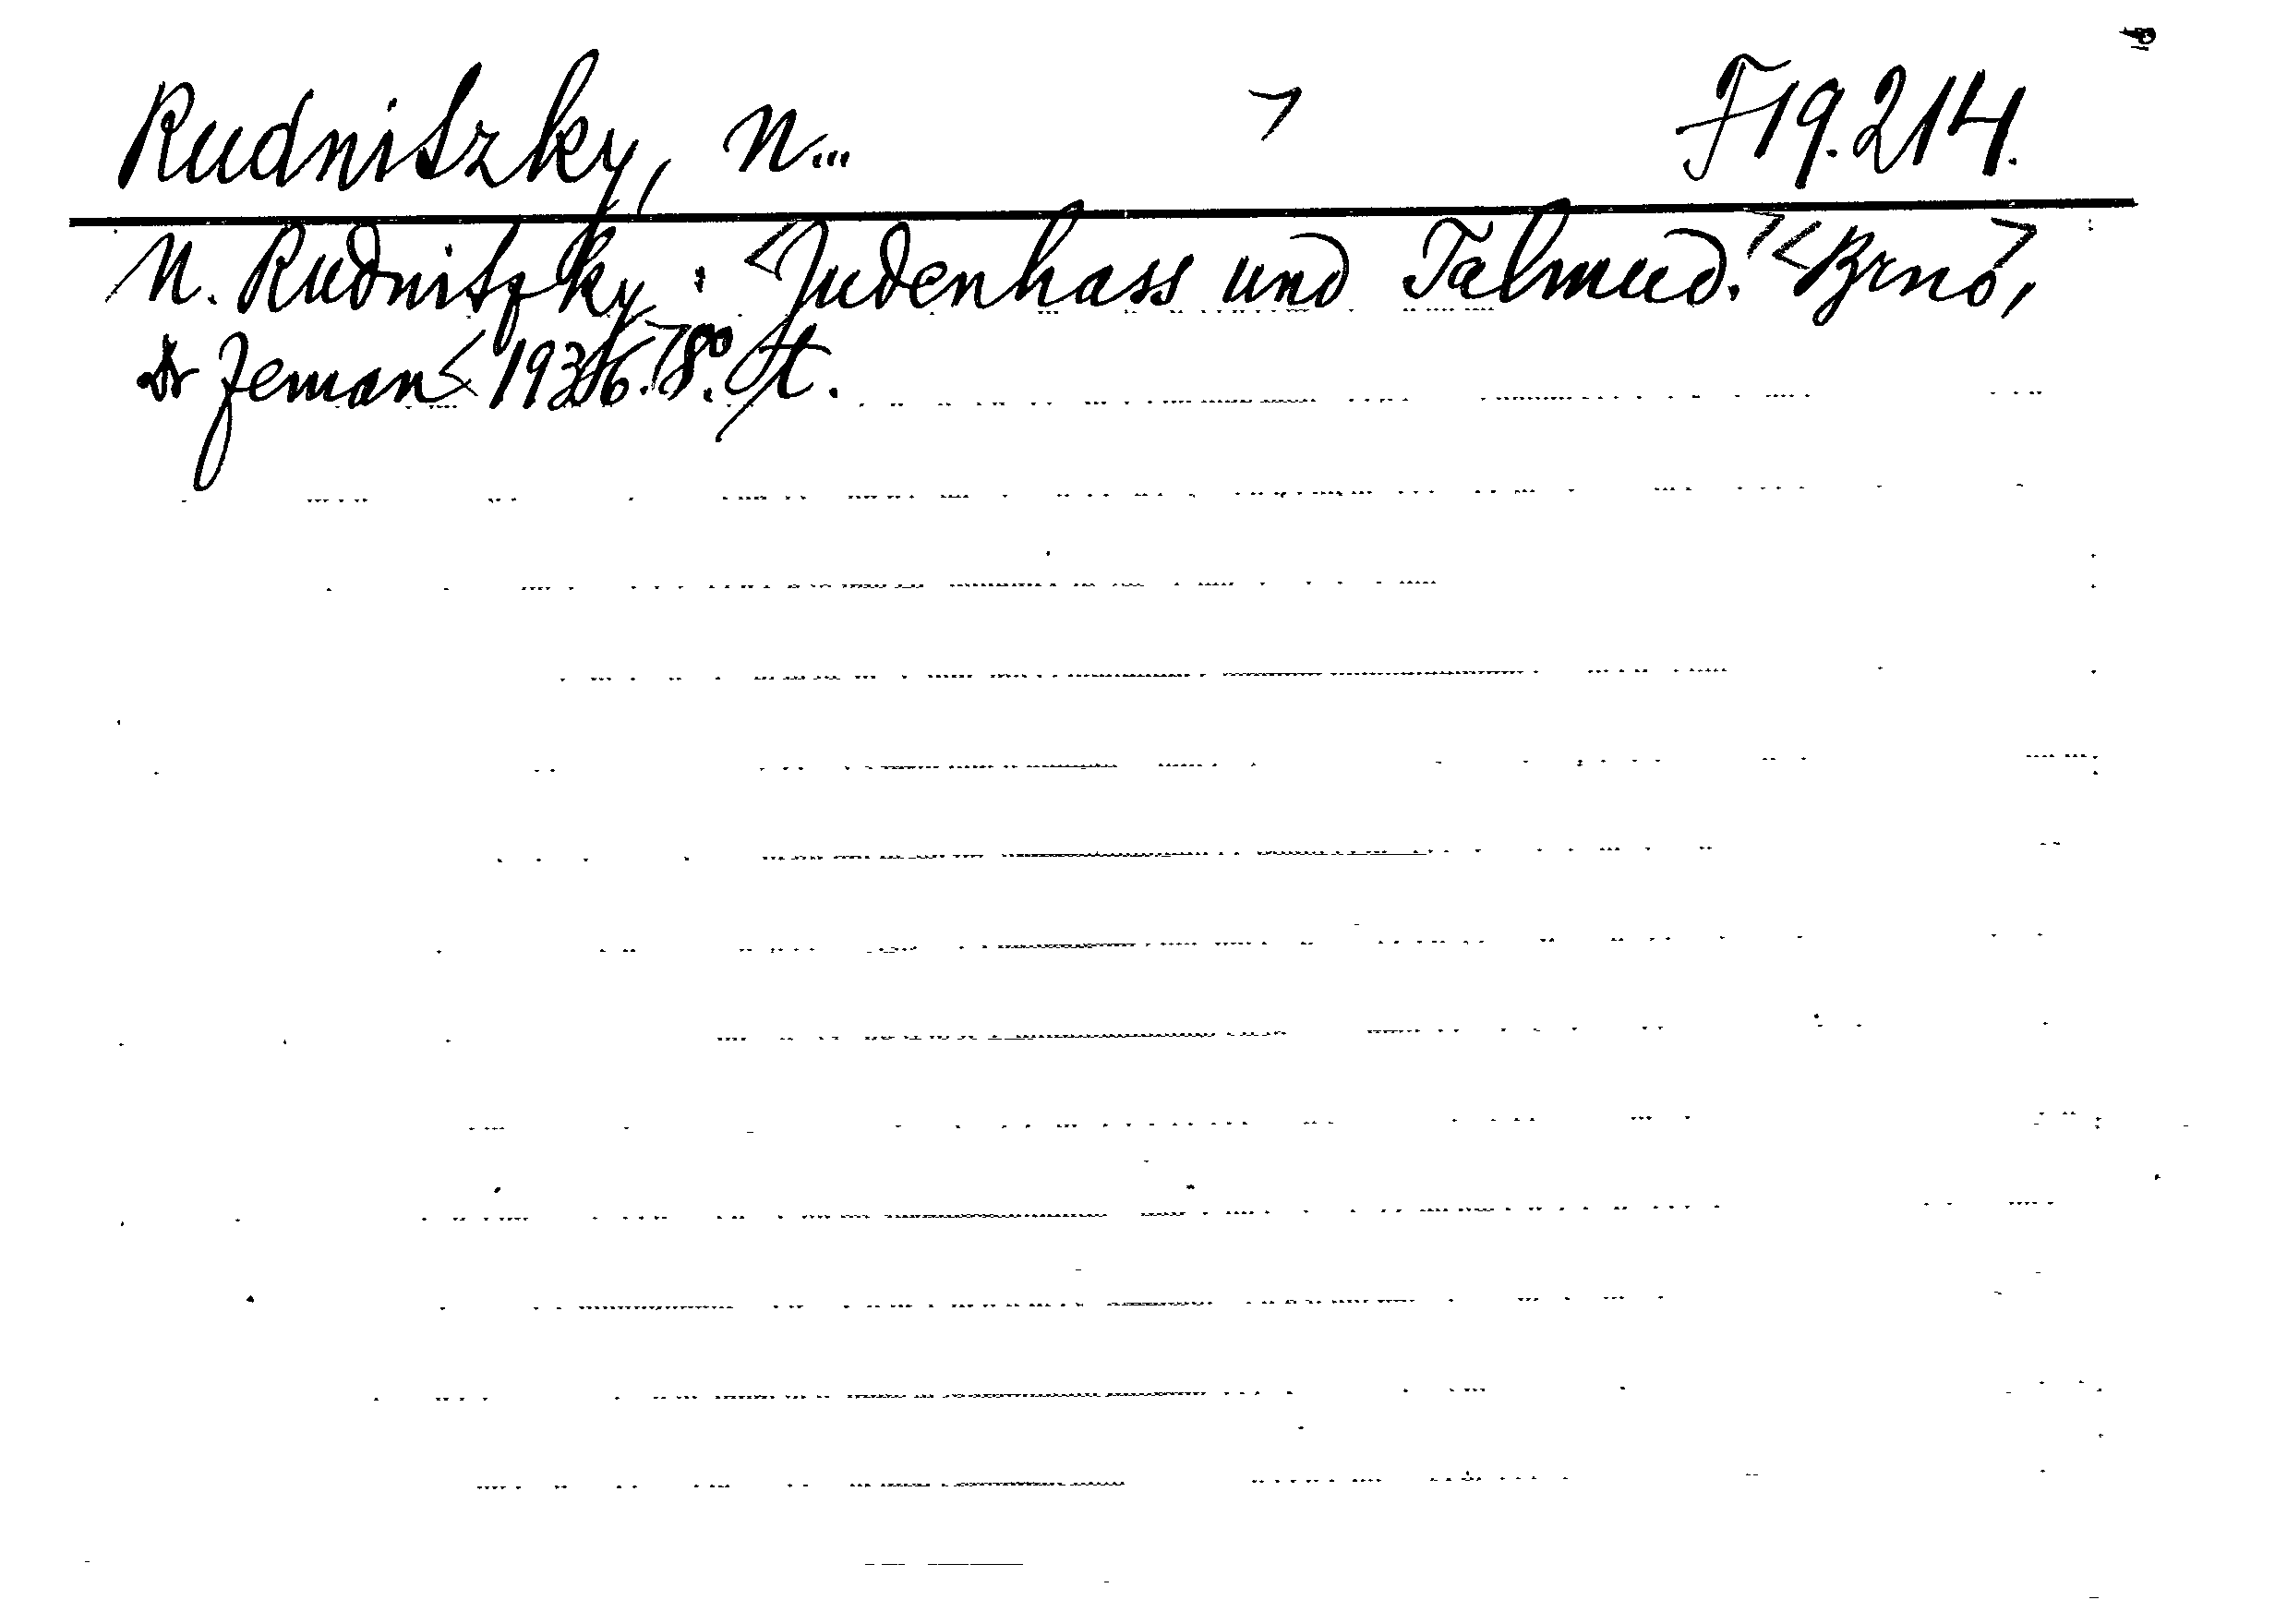 Rudnitzky, N... F19.214.
N. Rudnitzky: Judenhass und Talmud. Brno,
Dr Zeman 1936. 8°. St.